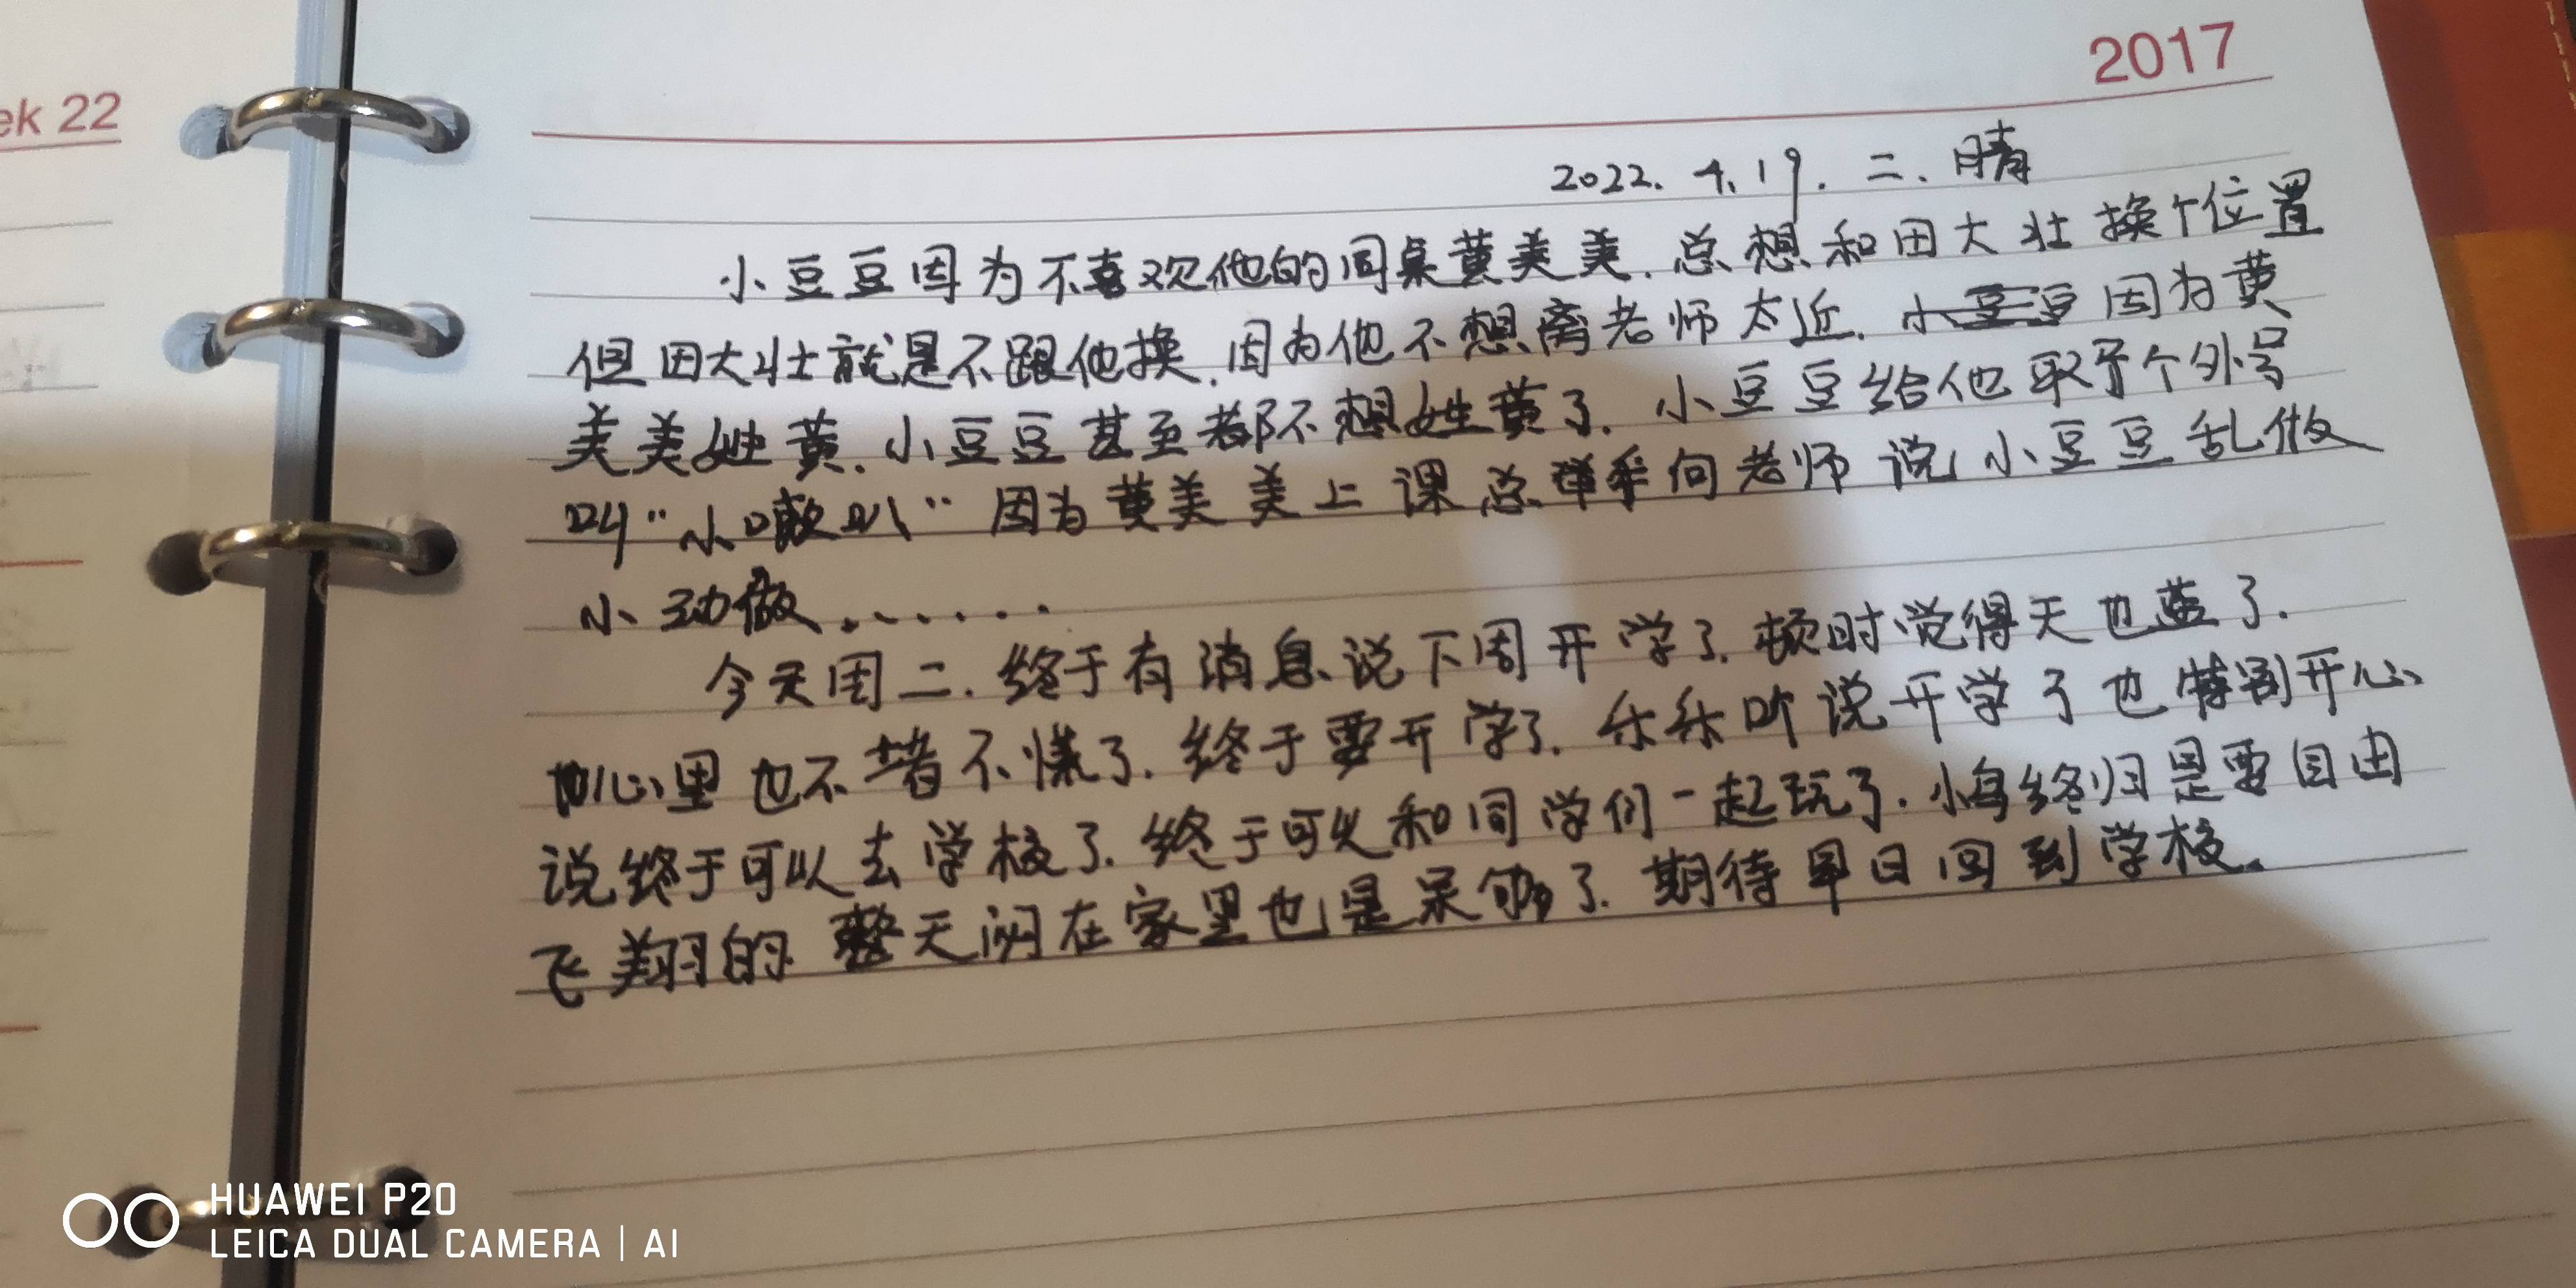 ek 22
2017
2022. 4.19. 二. 晴
小豆豆因为不喜欢他的同桌黄美美.总想和田大壮换个位置
但田大壮就是不跟他换.因为他不想离老师太近.小豆豆因为黄
美美姓黄.小豆豆甚至都不想姓黄了.小豆豆给他取了个外号
叫"小喇叭"因为黄美美上课总举手向老师说小豆豆乱做
小动做.......
今天周二.终于有消息说下周开学了.顿时觉得天也蓝了.
心里也不着不慌了.终于要开学了.乐乐听说开学了也特别开心
说终于可以去学校了.终于可以和同学们一起玩了.小鸟终归是要自由
飞翔的 整天闷在家里也是呆够了.期待早日回到学校.
HUAWEI P20
LEICA DUAL CAMERA | AI